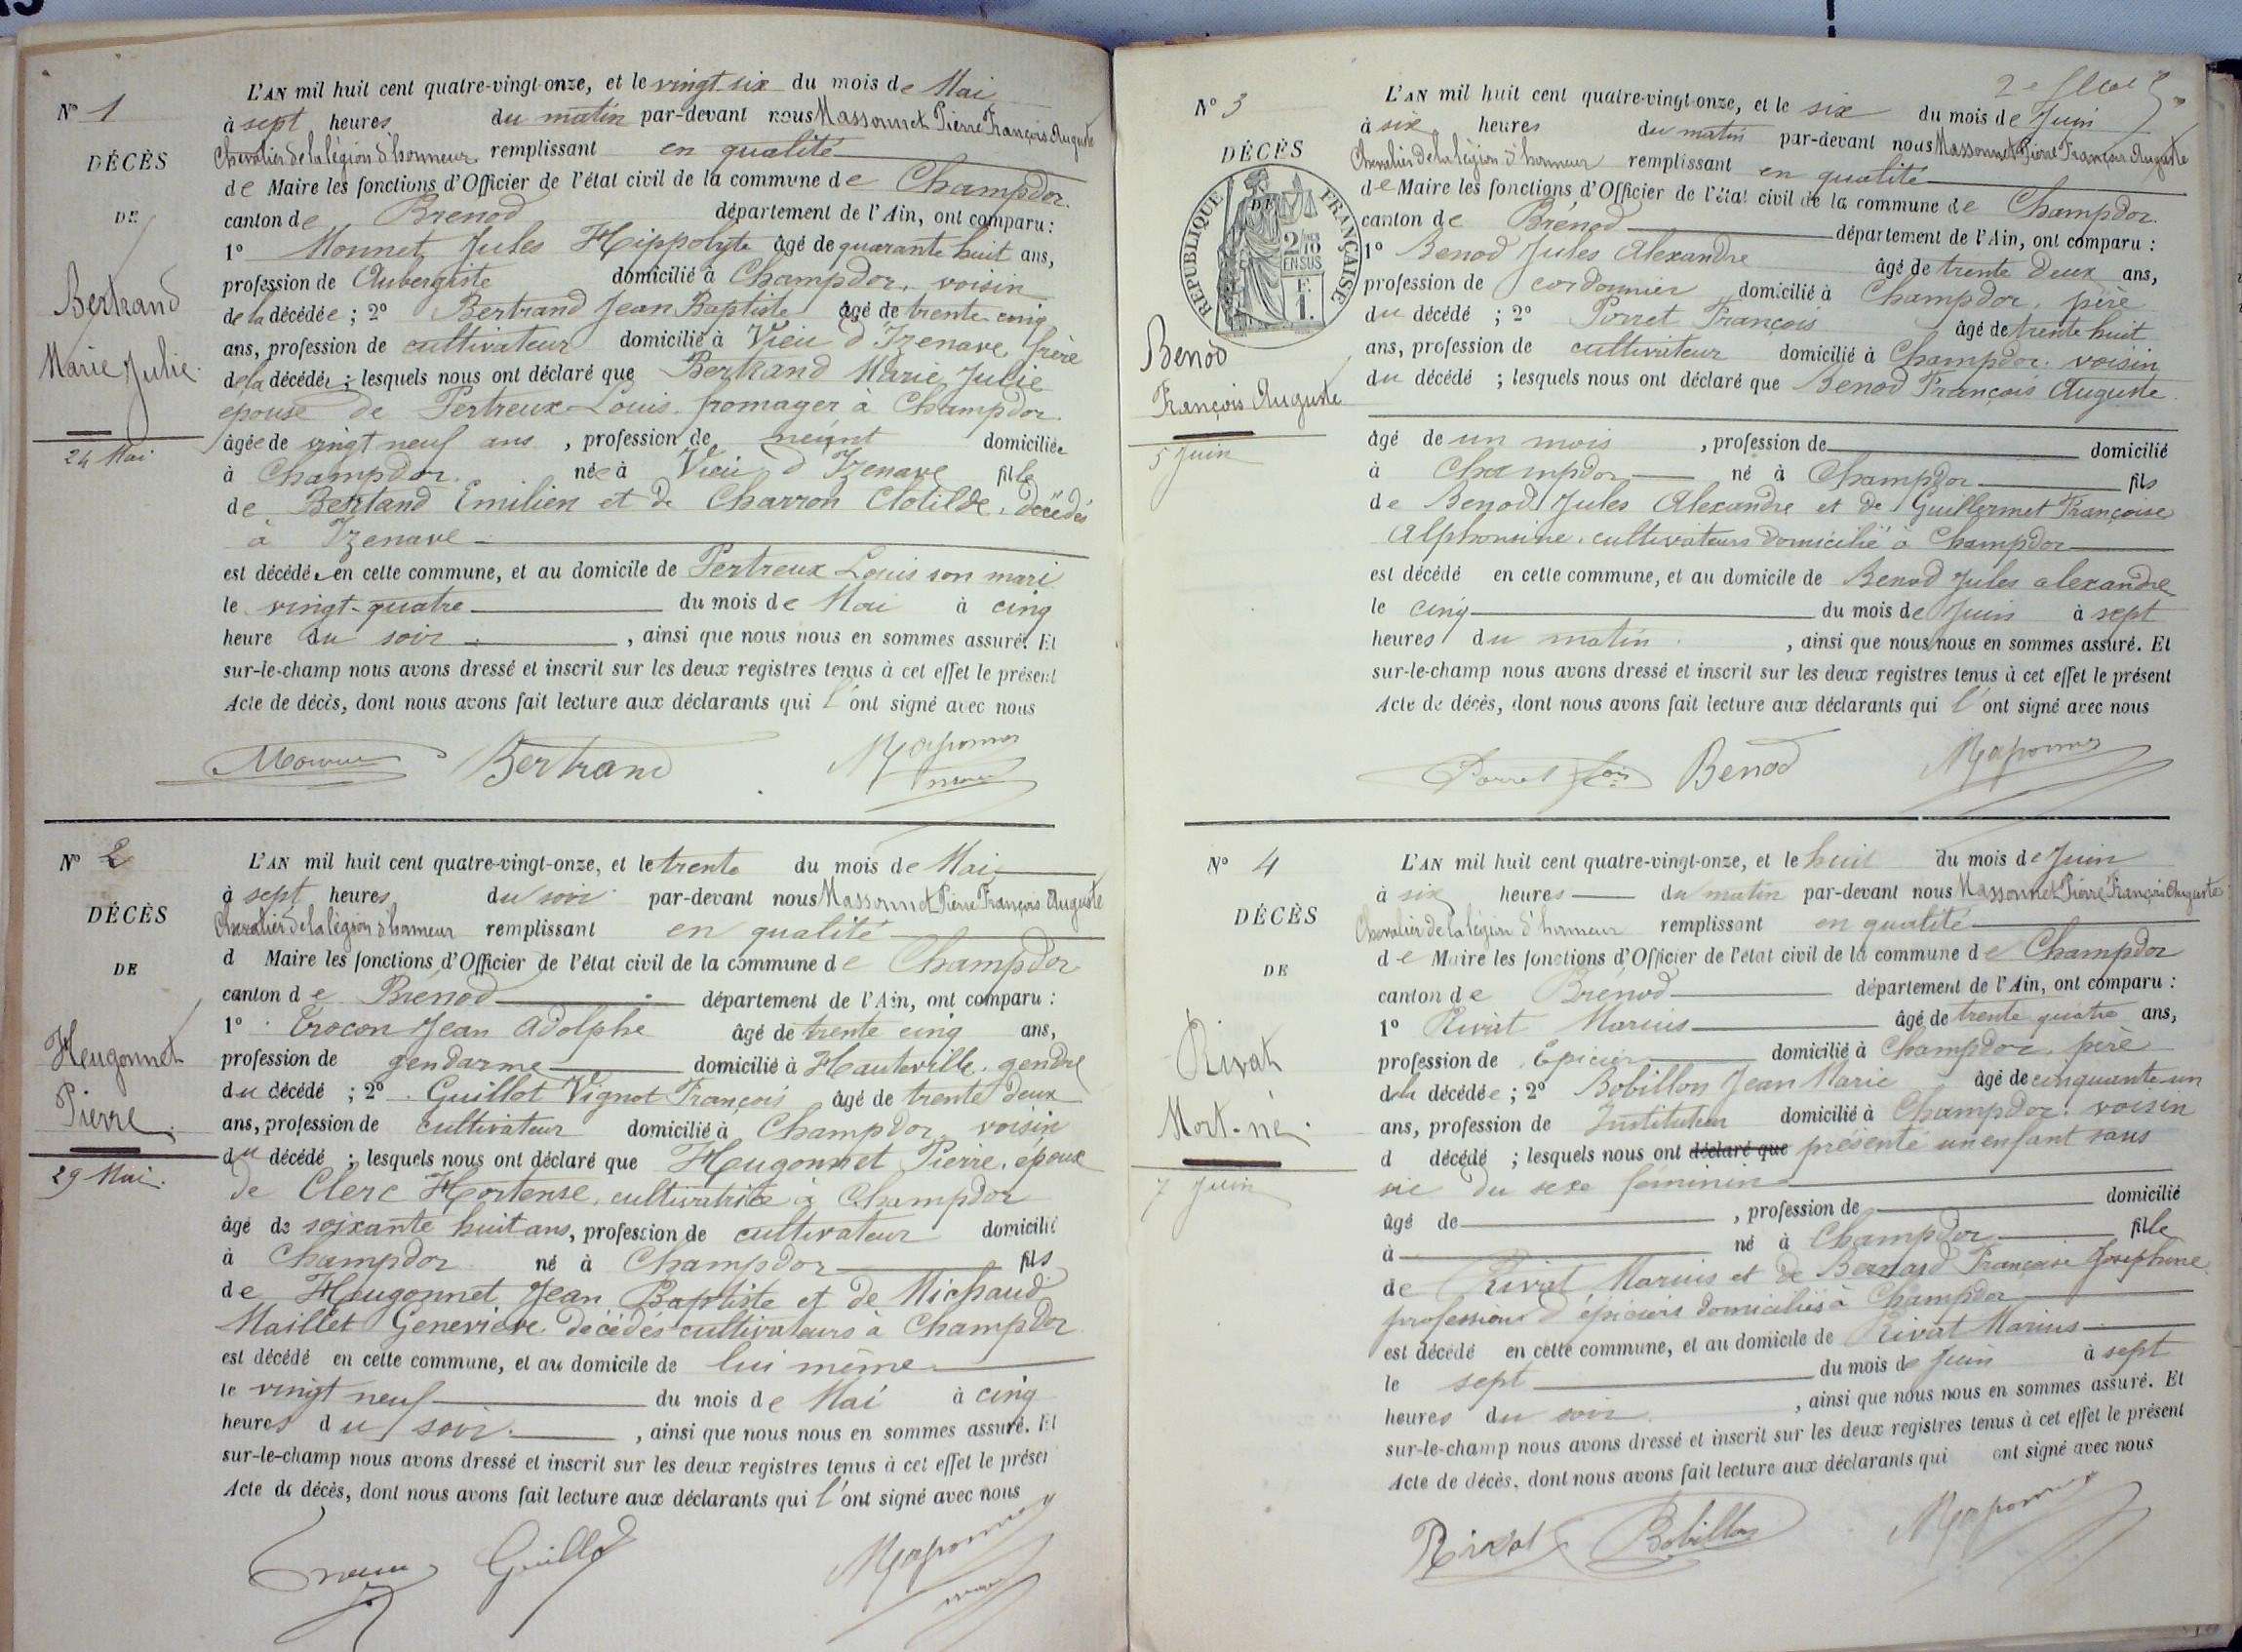 N° 1
DÉCÈS
DE
Bertrand
Marie Julie.
24 Mai
L'AN mil huit cent quatre-vingt-onze, et le vingt six du mois de Mai
à sept heures du matin par-devant nous Massonnet Pierre François Auguste
Chevalier de la légion d'honneur remplissant en qualité
de Maire les fonctions d'Officier de l'état civil de la commune de Champdor.
canton de Brenod département de l'Ain, ont comparu :
1° Monnet Jules Hippolyte âgé de quarante huit ans,
profession de Aubergiste domicilié à Champdor. voisin
de la décédée ; 2° Bertrand Jean Baptiste âgé de trente cinq
ans, profession de cultivateur domicilié à Vieu d'Izenave, frère
de la décédée ; lesquels nous ont déclaré que Bertrand Marie Julie
épouse de Pertreux Louis fromager à Champdor.
âgée de vingt neuf ans, profession de néant domiciliée
à Champdor. née à Vieu d'Izenave fille
de Bertand Emilien et de Charron Clotilde, décédés
à Izenave
est décédée en cette commune, et au domicile de Pertreux Louis son mari
le vingt-quatre du mois de Mai à cinq
heure du soir, ainsi que nous nous en sommes assuré. Et
sur-le-champ nous avons dressé et inscrit sur les deux registres tenus à cet effet le présent
Acte de décès, dont nous avons fait lecture aux déclarants qui l'ont signé avec nous
Bertrand
N° 2
DÉCÈS
DE
Heugonnet
Pierre.
29 Mai.
L'AN mil huit cent quatre-vingt-onze, et le trente du mois de Mai
à sept heures du soir par-devant nous Massonnet Pierre François Auguste
Chevalier de la légion d'honneur remplissant en qualité
d Maire les fonctions d'Officier de l'état civil de la commune de Champdor
canton de Brénod département de l'Ain, ont comparu :
1° Trocon Jean Adolphe âgé de trente cinq ans,
profession de gendarme domicilié à Hauteville, gendre
du décédé ; 2° Guillot Vignot François âgé de trente deux
ans, profession de cultivateur domicilié à Champdor. voisin
du décédé ; lesquels nous ont déclaré que Heugonnet Pierre, époux
de Clerc Hortense, cultivatrice à Champdor
âgé de soixante huit ans, profession de cultivateur domicilié
à Champdor né à Champdor fils
de Heugonnet Jean Baptiste et de Michaud
Maillet Geneviève décédés cultivateurs à Champdor
est décédé en cette commune, et au domicile de lui même
le vingt neuf du mois de Mai à cinq
heures du soir, ainsi que nous nous en sommes assuré. Et
sur-le-champ nous avons dressé et inscrit sur les deux registres tenus à cet effet le présent
Acte de décès, dont nous avons fait lecture aux déclarants qui l'ont signé avec nous
Guillot
2e
N° 3
DÉCÈS
DE
RÉPUBLIQUE FRANÇAISE
2/10 EN SUS
F. 1.
Benod
François Auguste
5 Juin
L'AN mil huit cent quatre-vingt-onze, et le six du mois de Juin
à six heures du matin par-devant nous Massonnet Pierre François Auguste
Chevalier de la légion d'honneur remplissant en qualité
de Maire les fonctions d'Officier de l'état civil de la commune de Champdor.
canton de Brénod département de l'Ain, ont comparu :
1° Benod Jules Alexandre âgé de trente deux ans,
profession de cordonnier domicilié à Champdor, père
du décédé ; 2° Porret François âgé de trente huit
ans, profession de cultivateur domicilié à Champdor. voisin
du décédé ; lesquels nous ont déclaré que Benod François Auguste.
âgé de un mois, profession de domicilié
à Champdor né à Champdor fils
de Benod Jules Alexandre et de Guillermet Françoise
Alphonsine, cultivateurs domicilié à Champdor
est décédé en cette commune, et au domicile de Benod Jules alexandre
le cinq du mois de Juin à sept
heures du matin, ainsi que nous nous en sommes assuré. Et
sur-le-champ nous avons dressé et inscrit sur les deux registres tenus à cet effet le présent
Acte de décès, dont nous avons fait lecture aux déclarants qui l'ont signé avec nous
Porret fois Benod
N° 4
DÉCÈS
DE
Rivat
Mort-né.
7 Juin
L'AN mil huit cent quatre-vingt-onze, et le huit du mois de Juin
à six heures du matin par-devant nous Massonnet Pierre François Auguste
Chevalier de la légion d'honneur remplissant en qualité
de Maire les fonctions d'Officier de l'état civil de la commune de Champdor
canton de Brénod département de l'Ain, ont comparu :
1° Rivat Marius âgé de trente quatre ans,
profession de Epicier domicilié à Champdor, père
d la décédée ; 2° Bobillon Jean Marie âgé de cinquante un
ans, profession de Instituteur domicilié à Champdor. voisin
d décédé ; lesquels nous ont déclaré que présenté un enfant sans
vie du sexe féminin
âgé de , profession de domicilié
à né à Champdor fille
de Rivat Marius et de Bernard Françoise Joséphine
profession d'épiciers domiciliés à Champdor
est décédé en cette commune, et au domicile de Rivat Marius
le sept du mois de Juin à sept
heures du soir, ainsi que nous nous en sommes assuré. Et
sur-le-champ nous avons dressé et inscrit sur les deux registres tenus à cet effet le présent
Acte de décès, dont nous avons fait lecture aux déclarants qui ont signé avec nous
Rivat Bobillon